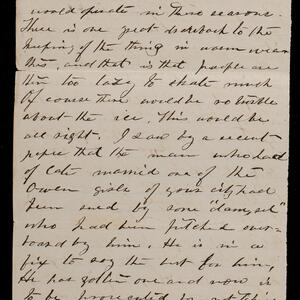 would operate in three seasons.
There is one great drawback to the
keeping of the thing in warm wea
ther, and that is that people are
then too lazy to skate much
Of course there would be no trouble
about the ice. This would be
all right. I saw by a recent
paper that the man who had
of late married one of the
Owen girls of your city, had
been sued by some "damsel"
who had him pitched over-
board by him. He is in a
fix to say the best for him,
He has gotten one and now is
to be prosecuted by